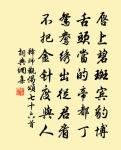 唇上碧斑賓豹博
舌頭當的帝都丁
鴛鴦繡出從君看
不把金針度與人
釋師觀偈頌七十六首
詞典網集